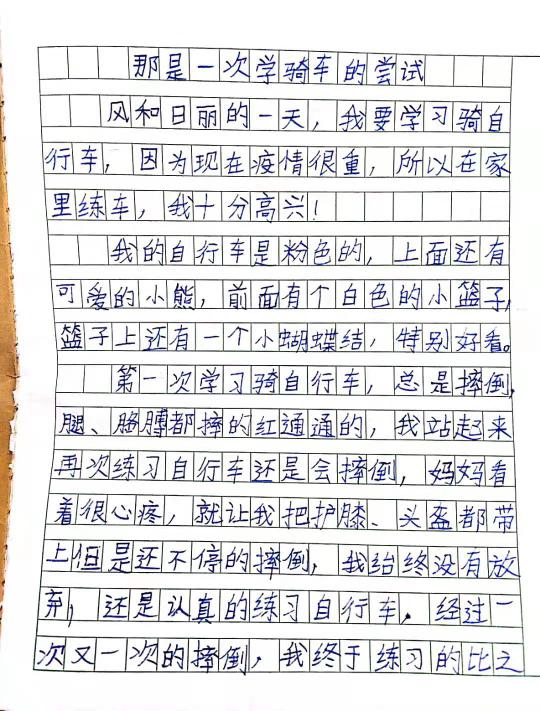 那是一次学骑车的尝试
风和日丽的一天，我要学习骑自
行车，因为现在疫情很重，所以在家
里练车，我十分高兴！
我的自行车是粉色的，上面还有
可爱的小熊，前面有个白色的小篮子，
篮子上还有一个小蝴蝶结，特别好看。
第一次学习骑自行车，总是摔倒，
腿、胳膊都摔的红通通的，我站起来
再次练习自行车还是会摔倒，妈妈看
着很心疼，就让我把护膝、头盔都带
上但是还不停的摔倒，我始终没有放
弃，还是认真的练习自行车．经过一
次又一次的摔倒，我终于练习的比之